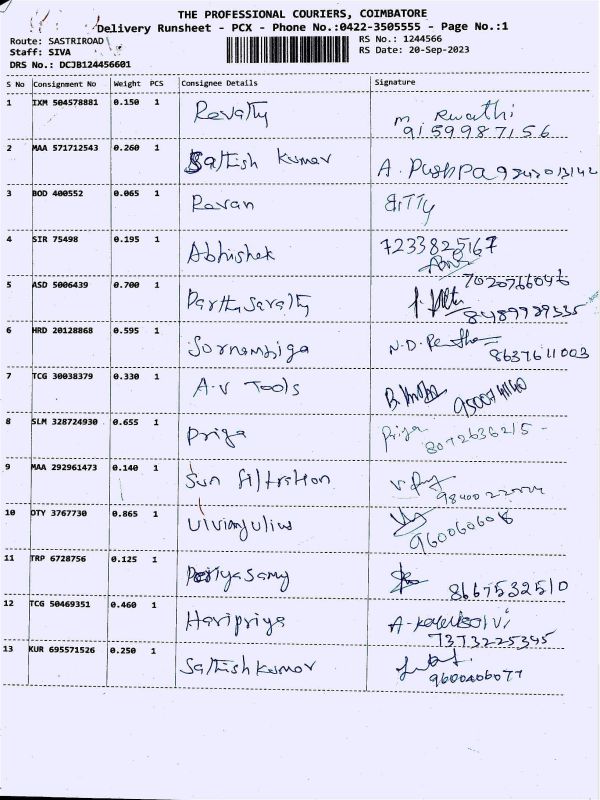 THE PROFESSIONAL COURIERS, COIMBATORE
Delivery Runsheet - PCX - Phone No.:0422-3505555 - Page No.:1
Route: SASTRIROAD
RS No.: 1244566
Staff: SIVA
RS Date: 20-Sep-2023
DRS No.: DCJB124456601
S No Consignment No Weight PCS Consignee Details Signature
1 IXM 504578881 0.150 1 Revathy M. Revathi
9159987156
2 MAA 571712543 0.260 1 Sathish Kumar A. Pushpa
3 BOD 400552 0.065 1 Revan BITTY
4 SIR 75498 0.195 1 Abhishek 7233825167
5 ASD 5006439 0.700 1 Parthasarathy 7020766046
8489979335
6 HRD 20128868 0.595 1 Sornambiga N.D.
8637611003
7 TCG 30038379 0.330 1 A.V Tools
8 SLM 328724930 0.655 1 Priya Priya
8072636215
9 MAA 292961473 0.140 1 Sun filtration
10 OTY 3767730 0.865 1
960060608
11 TRP 6728756 0.125 1 Periyasamy 8667532510
12 TCG 50469351 0.460 1 Haripriya
7373225345
13 KUR 695571526 0.250 1 Sathishkumar
9600406077